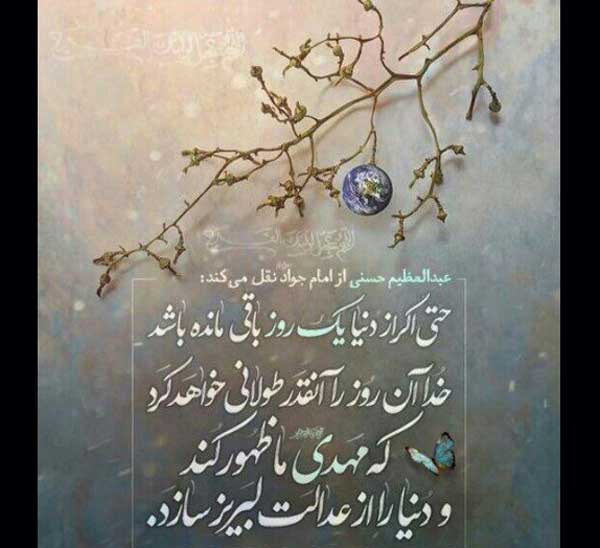 اللهم عجل لولیک الفرج
اللهم عجل لولیک الفرج
عبدالعظیم حسنی از امام جواد نقل می‌کند:
حتی اگر از دنیا یک روز باقی مانده باشد
خدا آن روز را آنقدر طولانی خواهد کرد
که مهدی ما ظهور کند
و دنیا را از عدالت لبریز سازد.